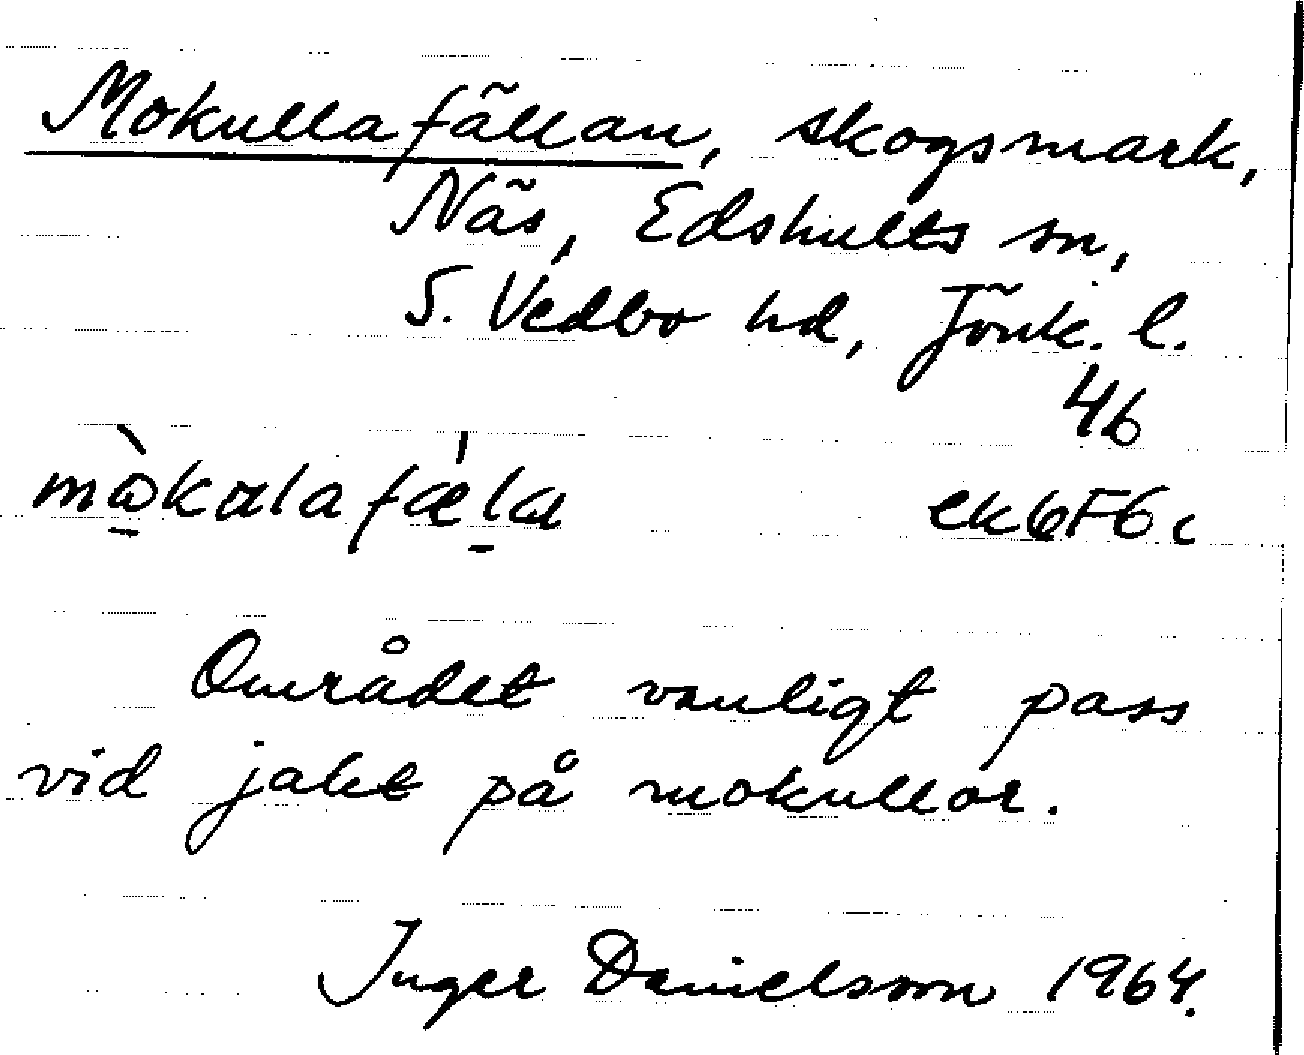 Mokullafällan, skogsmark,
Näs, Edshults sn,
S. Vedbo hd, Jönk. l.
46
ek6F6c
Området vanligt pass
vid jakt på mokullor.
Inger Danielsson 1964.